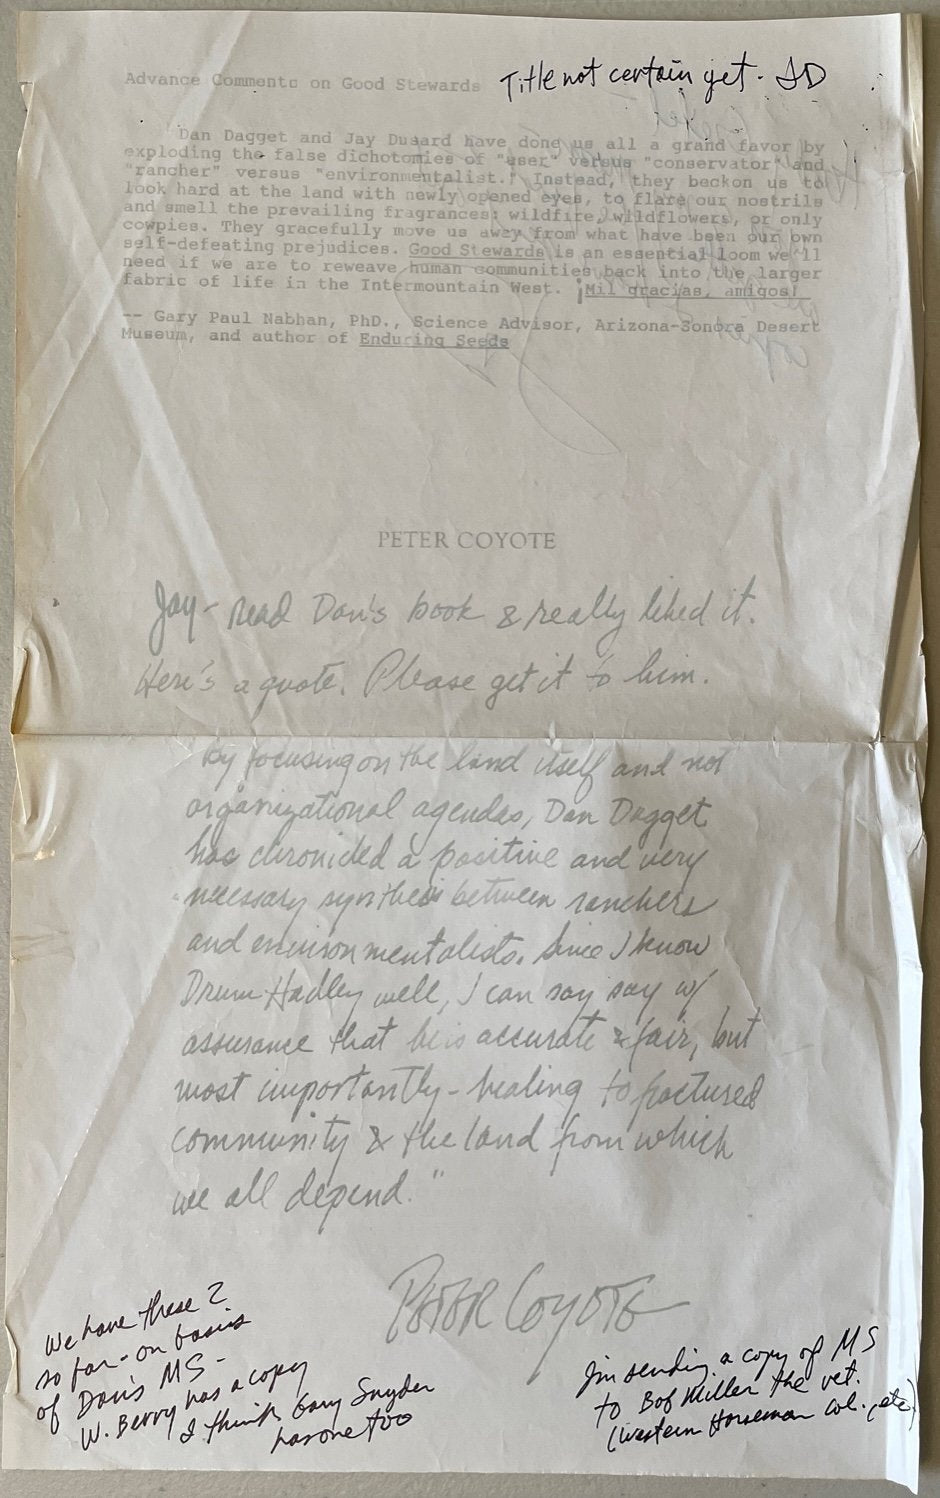 Advance Comments on Good Stewards
Title not certain yet. JD
Dan Dagget and Jay Dusard have done us all a grand favor by
exploding the false dichotomies of "user" versus "conservator" and
"rancher" versus "environmentalist." Instead, they beckon us to
look hard at the land with newly opened eyes, to flare our nostrils
and smell the prevailing fragrances: wildfire, wildflowers, or only
cowpies. They gracefully move us away from what have been our own
self-defeating prejudices. Good Stewards is an essential loom we'll
need if we are to reweave human communities back into the larger
fabric of life in the Intermountain West. ¡Mil gracias, amigos!
-- Gary Paul Nabhan, PhD., Science Advisor, Arizona-Sonora Desert
Museum, and author of Enduring Seeds
PETER COYOTE
Jay - read Dan's book & really liked it.
Here's a quote. Please get it to him.
"By focusing on the land itself and not
organizational agendas, Dan Dagget
has chronicled a positive and very
necessary synthesis between ranchers
and environmentalists. Since I know
Drum Hadley well, I can say say w/
assurance that he is accurate & fair, but
most importantly - healing to fractured
community & the land from which
we all depend."
Peter Coyote
We have these 2
so far - on basis
of Dan's MS -
W. Berry has a copy
I think Gary Snyder
has one too
I'm sending a copy of MS
to Bob Miller the vet.
(Western Horseman col., etc)